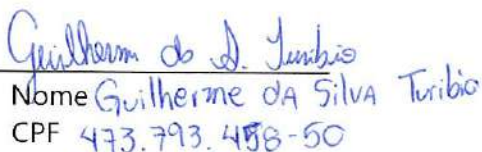 Guilherme da S. Turibio
Nome Guilherme dA Silva Turibio
CPF 473.793.458-50